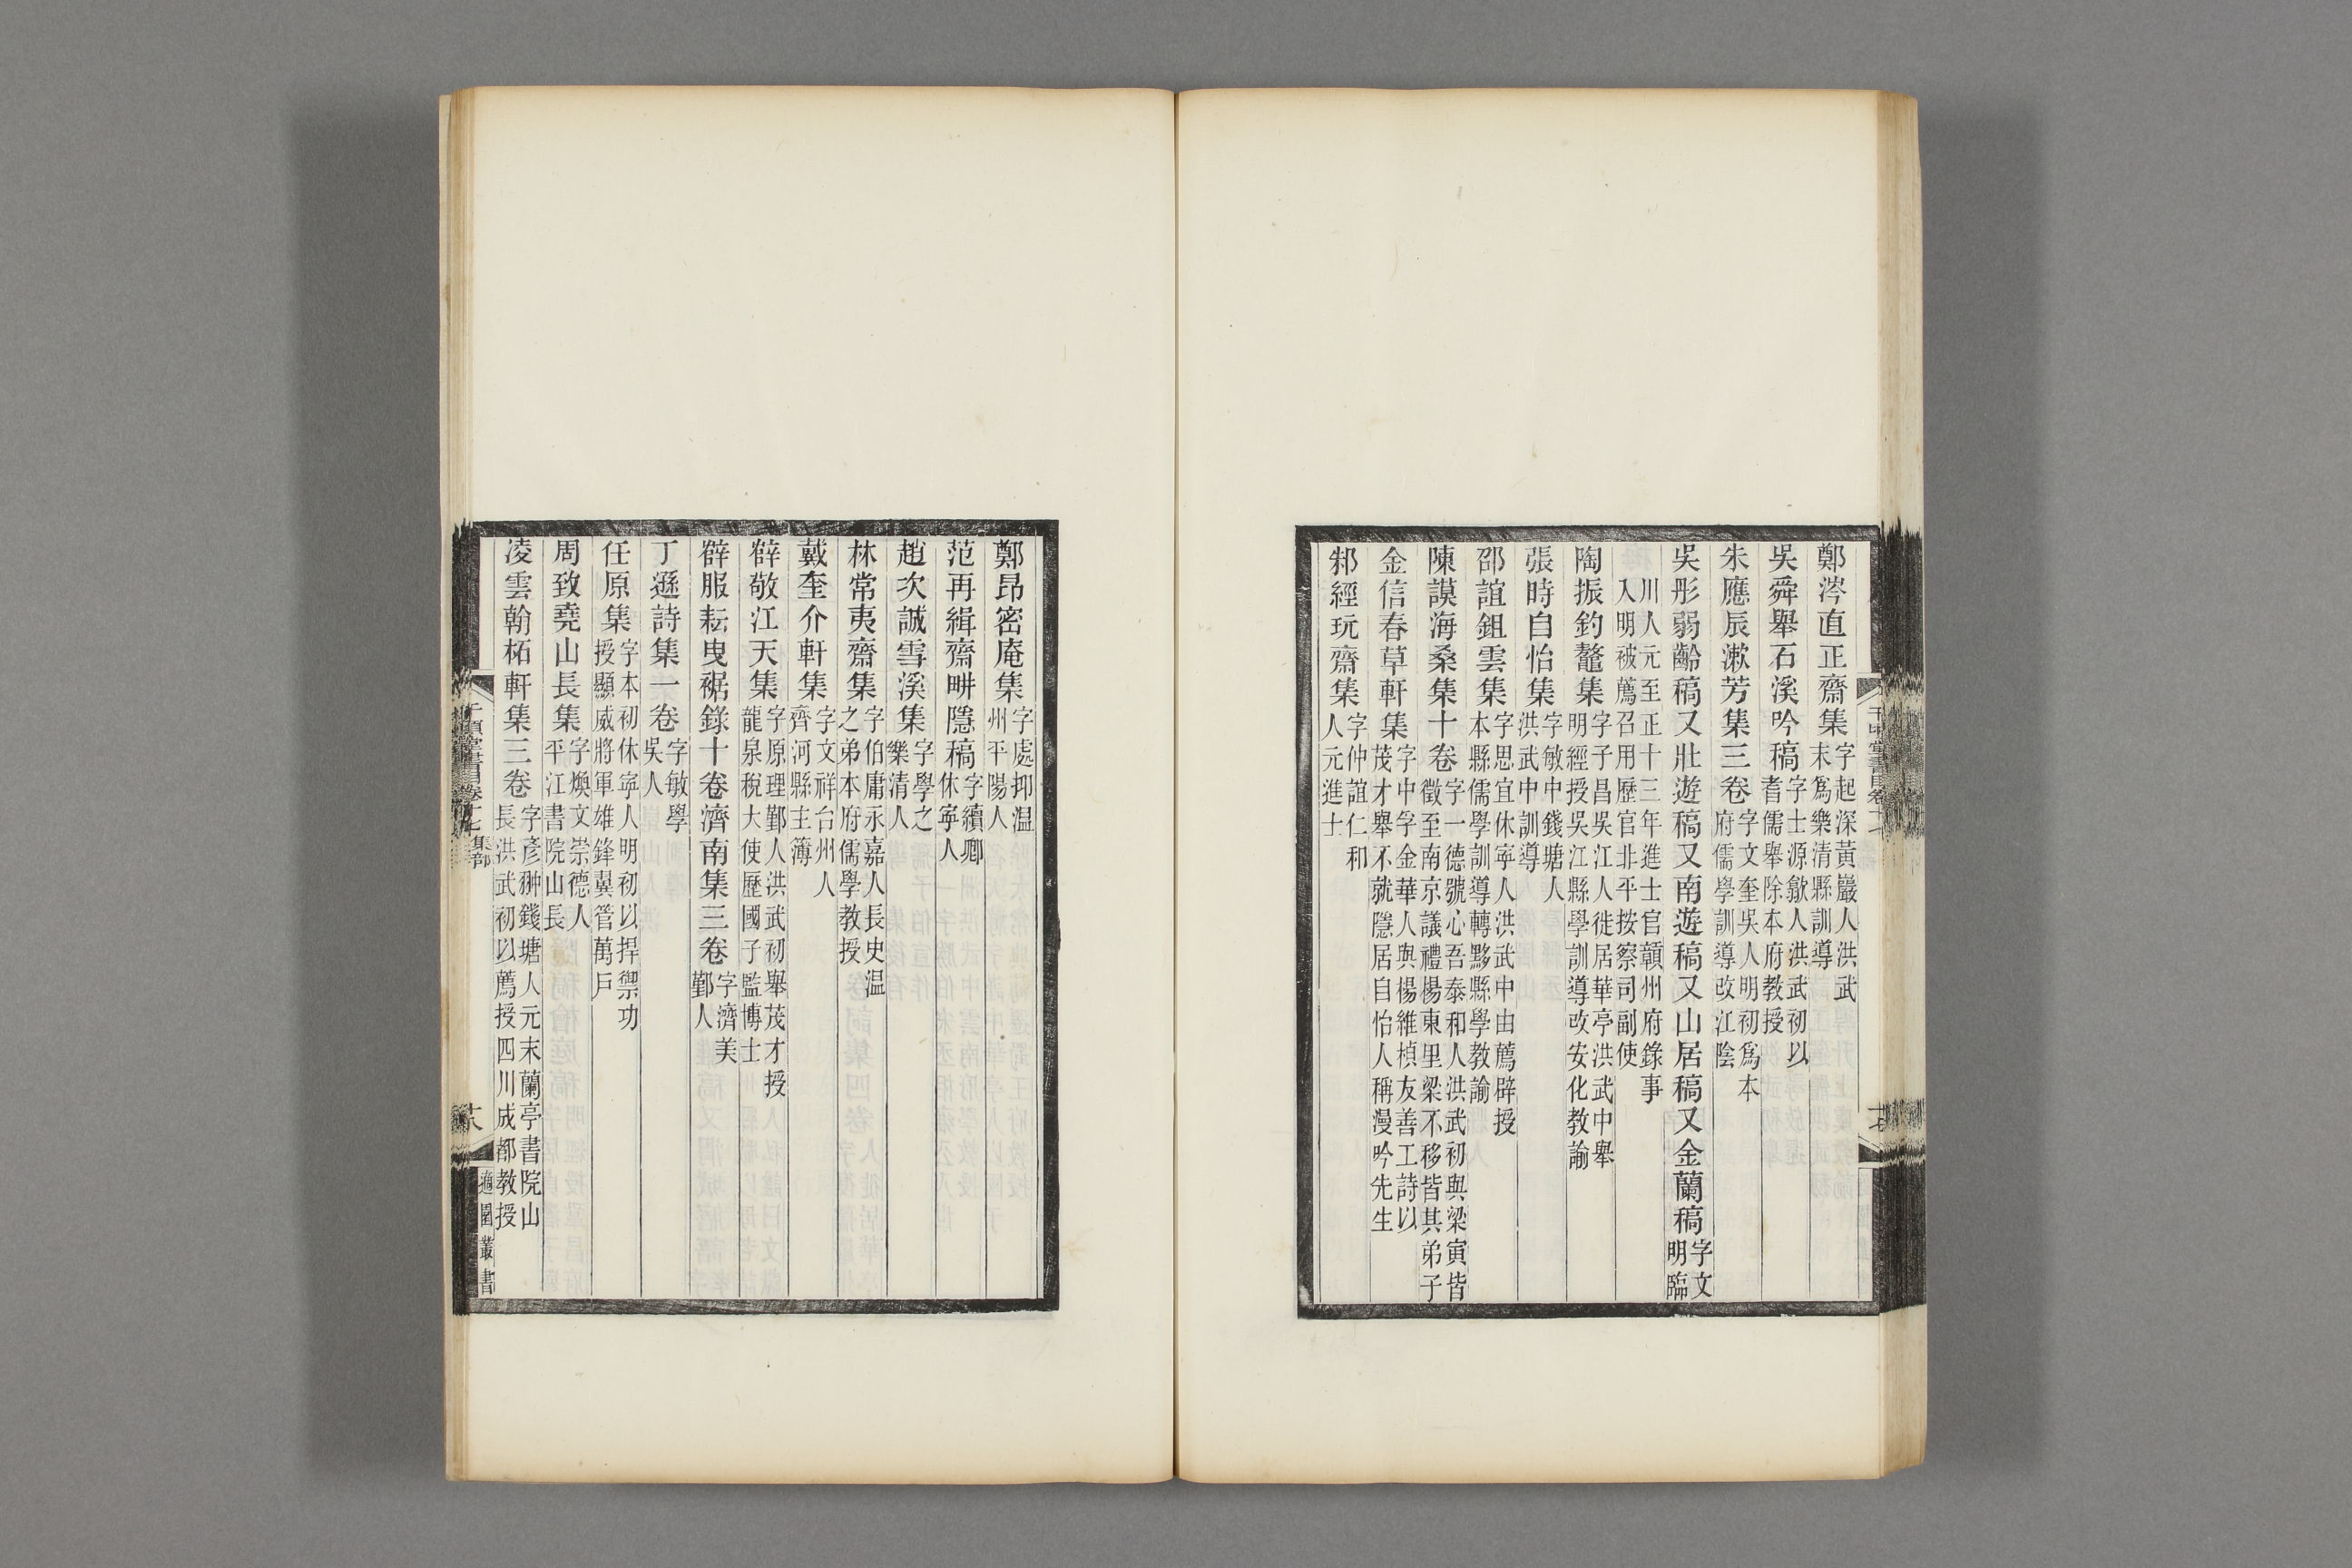 鄭涔直正齋集字起深黃巖人洪武末爲樂清縣訓導
吳舜舉石溪吟稿字士源歙人洪武初以耆儒舉除本府教授
朱應辰漱芳集三卷字文奎吳人明初爲本府儒學訓導改江陰
吳彤弱齡稿又壯遊稿又南遊稿又山居稿又金蘭稿字文明臨
川人元至正十三年進士官贛州府錄事入明被薦召用歷官北平按察司副使
陶振釣鼇集字子昌吳江人徙居華亭洪武中舉明經授吳江縣學訓導改安化教諭
張時自怡集字敏中錢塘人洪武中訓導
邵誼鉏雲集字思宜休寧人洪武中由薦辟授本縣儒學訓導轉黟縣學教諭
陳謨海桑集十卷字一德號心吾泰和人洪武初與梁寅皆徵至南京議禮楊東里梁不移皆其弟子
金信春草軒集字中孚金華人與楊維楨友善工詩以茂才舉不就隱居自怡人稱漫吟先生
邾經玩齋集字仲誼仁和人元進士
千頃堂書目卷十七
十七
鄭昂密庵集字處抑温州平陽人
范再緝齋畊隱稿字續卿休寧人
趙次誠雪溪集字學之樂清人
林常夷齋集字伯庸永嘉人長史温之弟本府儒學教授
戴奎介軒集字文祥台州人齊河縣主簿
辥敬江天集字原理鄞人洪武初舉茂才授龍泉稅大使歷國子監博士
辥服耘曳裾錄十卷濟南集三卷字濟美鄞人
丁遜詩集一卷字敏學吳人
任原集字本初休寧人明初以捍禦功授顯威將軍雄鋒翼管萬戶
周致堯山長集字煥文崇德人平江書院山長
凌雲翰柘軒集三卷字彥翀錢塘人元末蘭亭書院山長洪武初以薦授四川成都教授
千頃堂書目卷十七 集部
十八
適園叢書